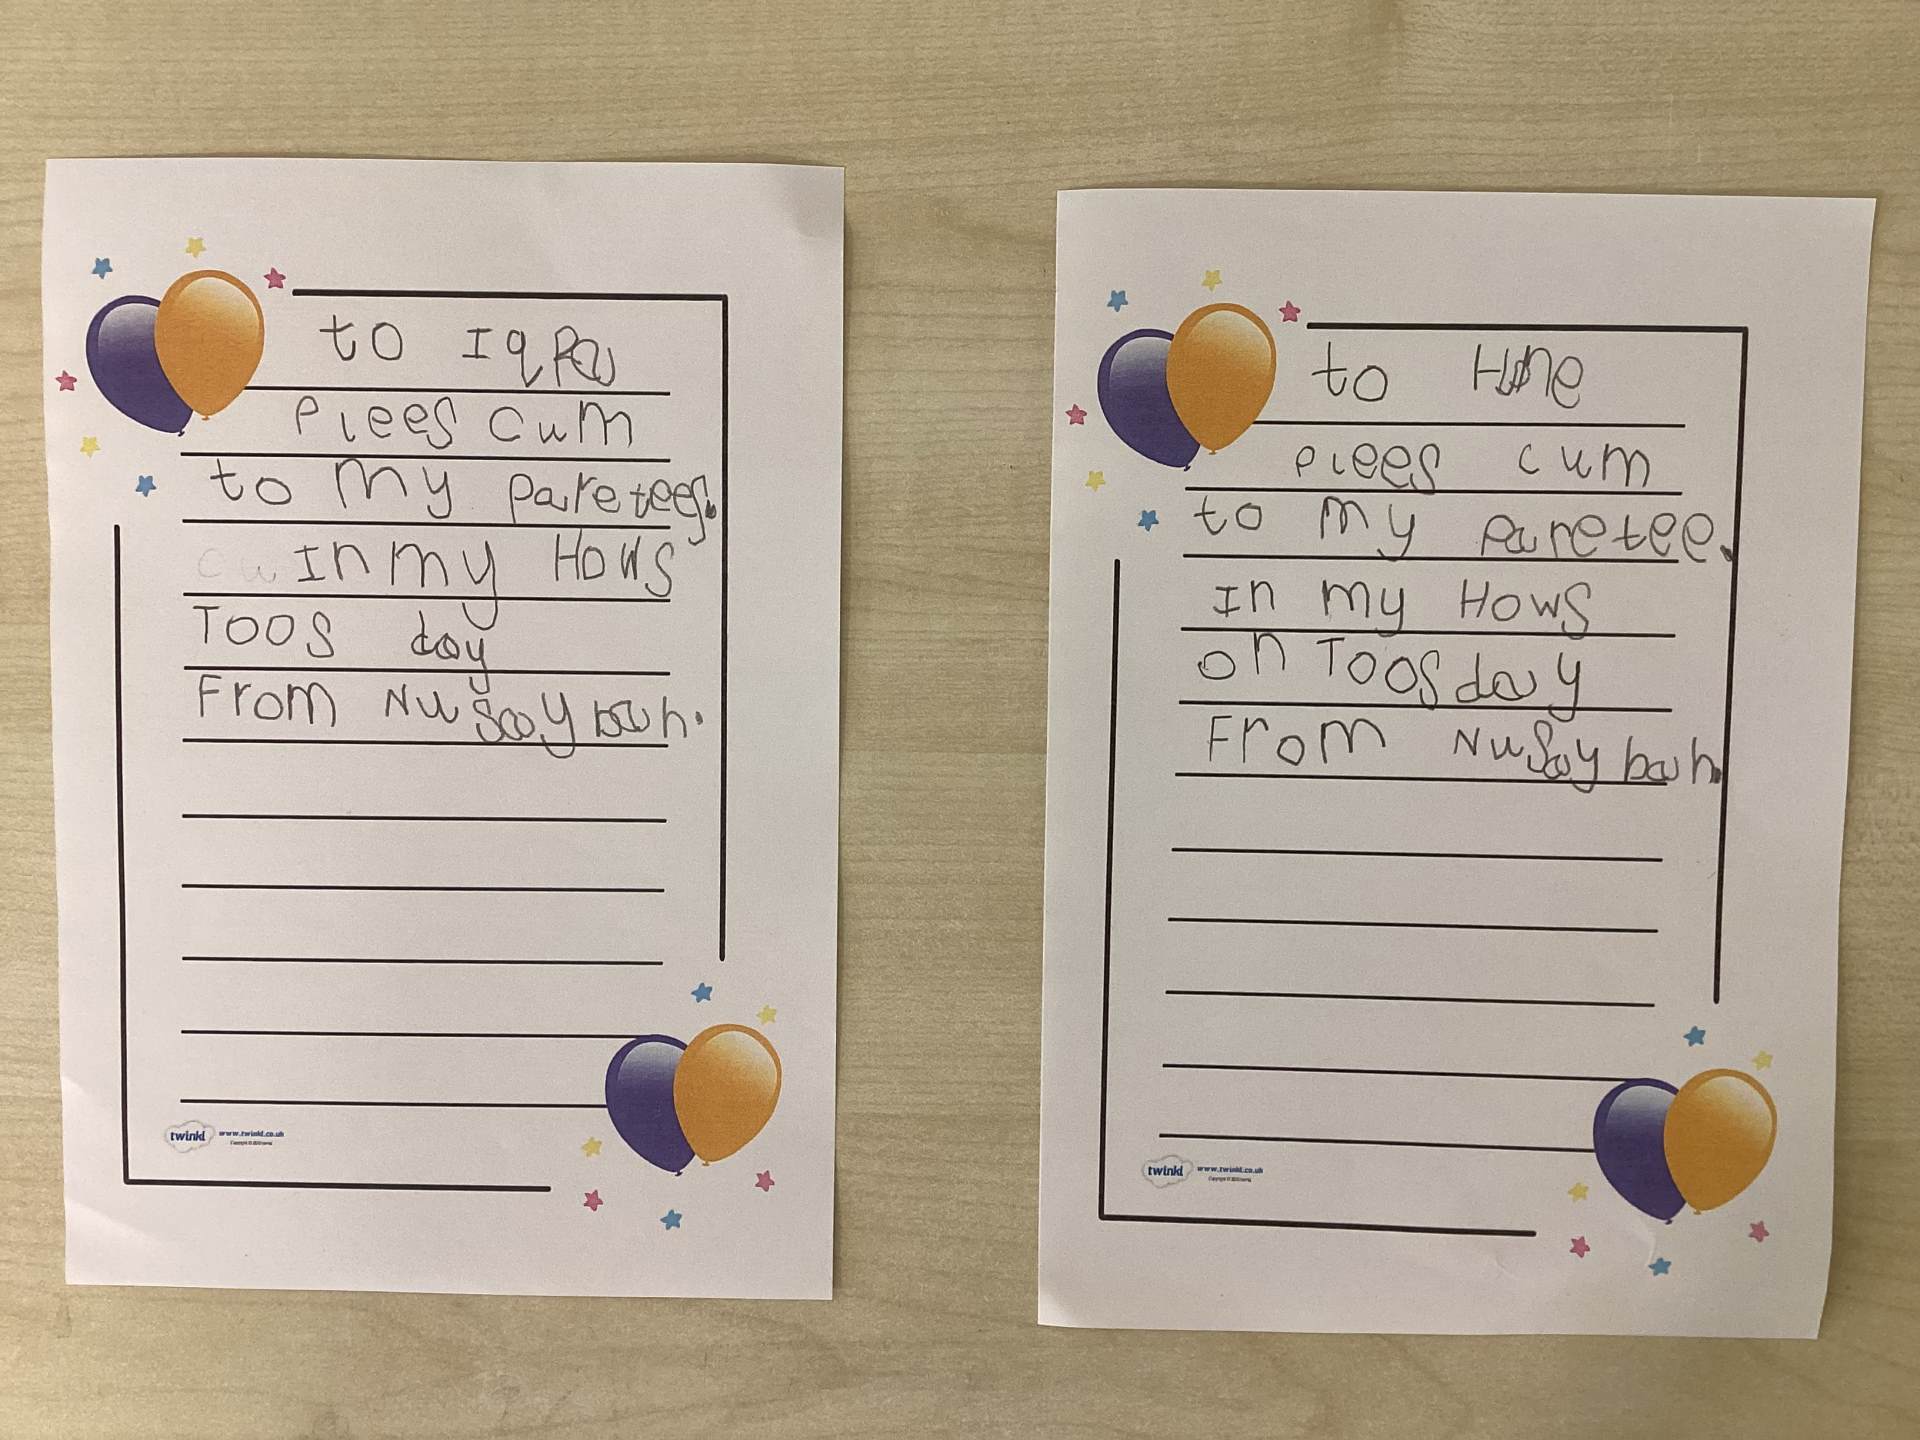 to Iqra
Plees cum
to my paretees.
cu In my Hows
Toos day
From Nusaybah.
twinkl www.twinkl.co.uk
to
plees cum
to my paretee.
In my Hows
on Toosday
From Nusaybah.
twinkl www.twinkl.co.uk